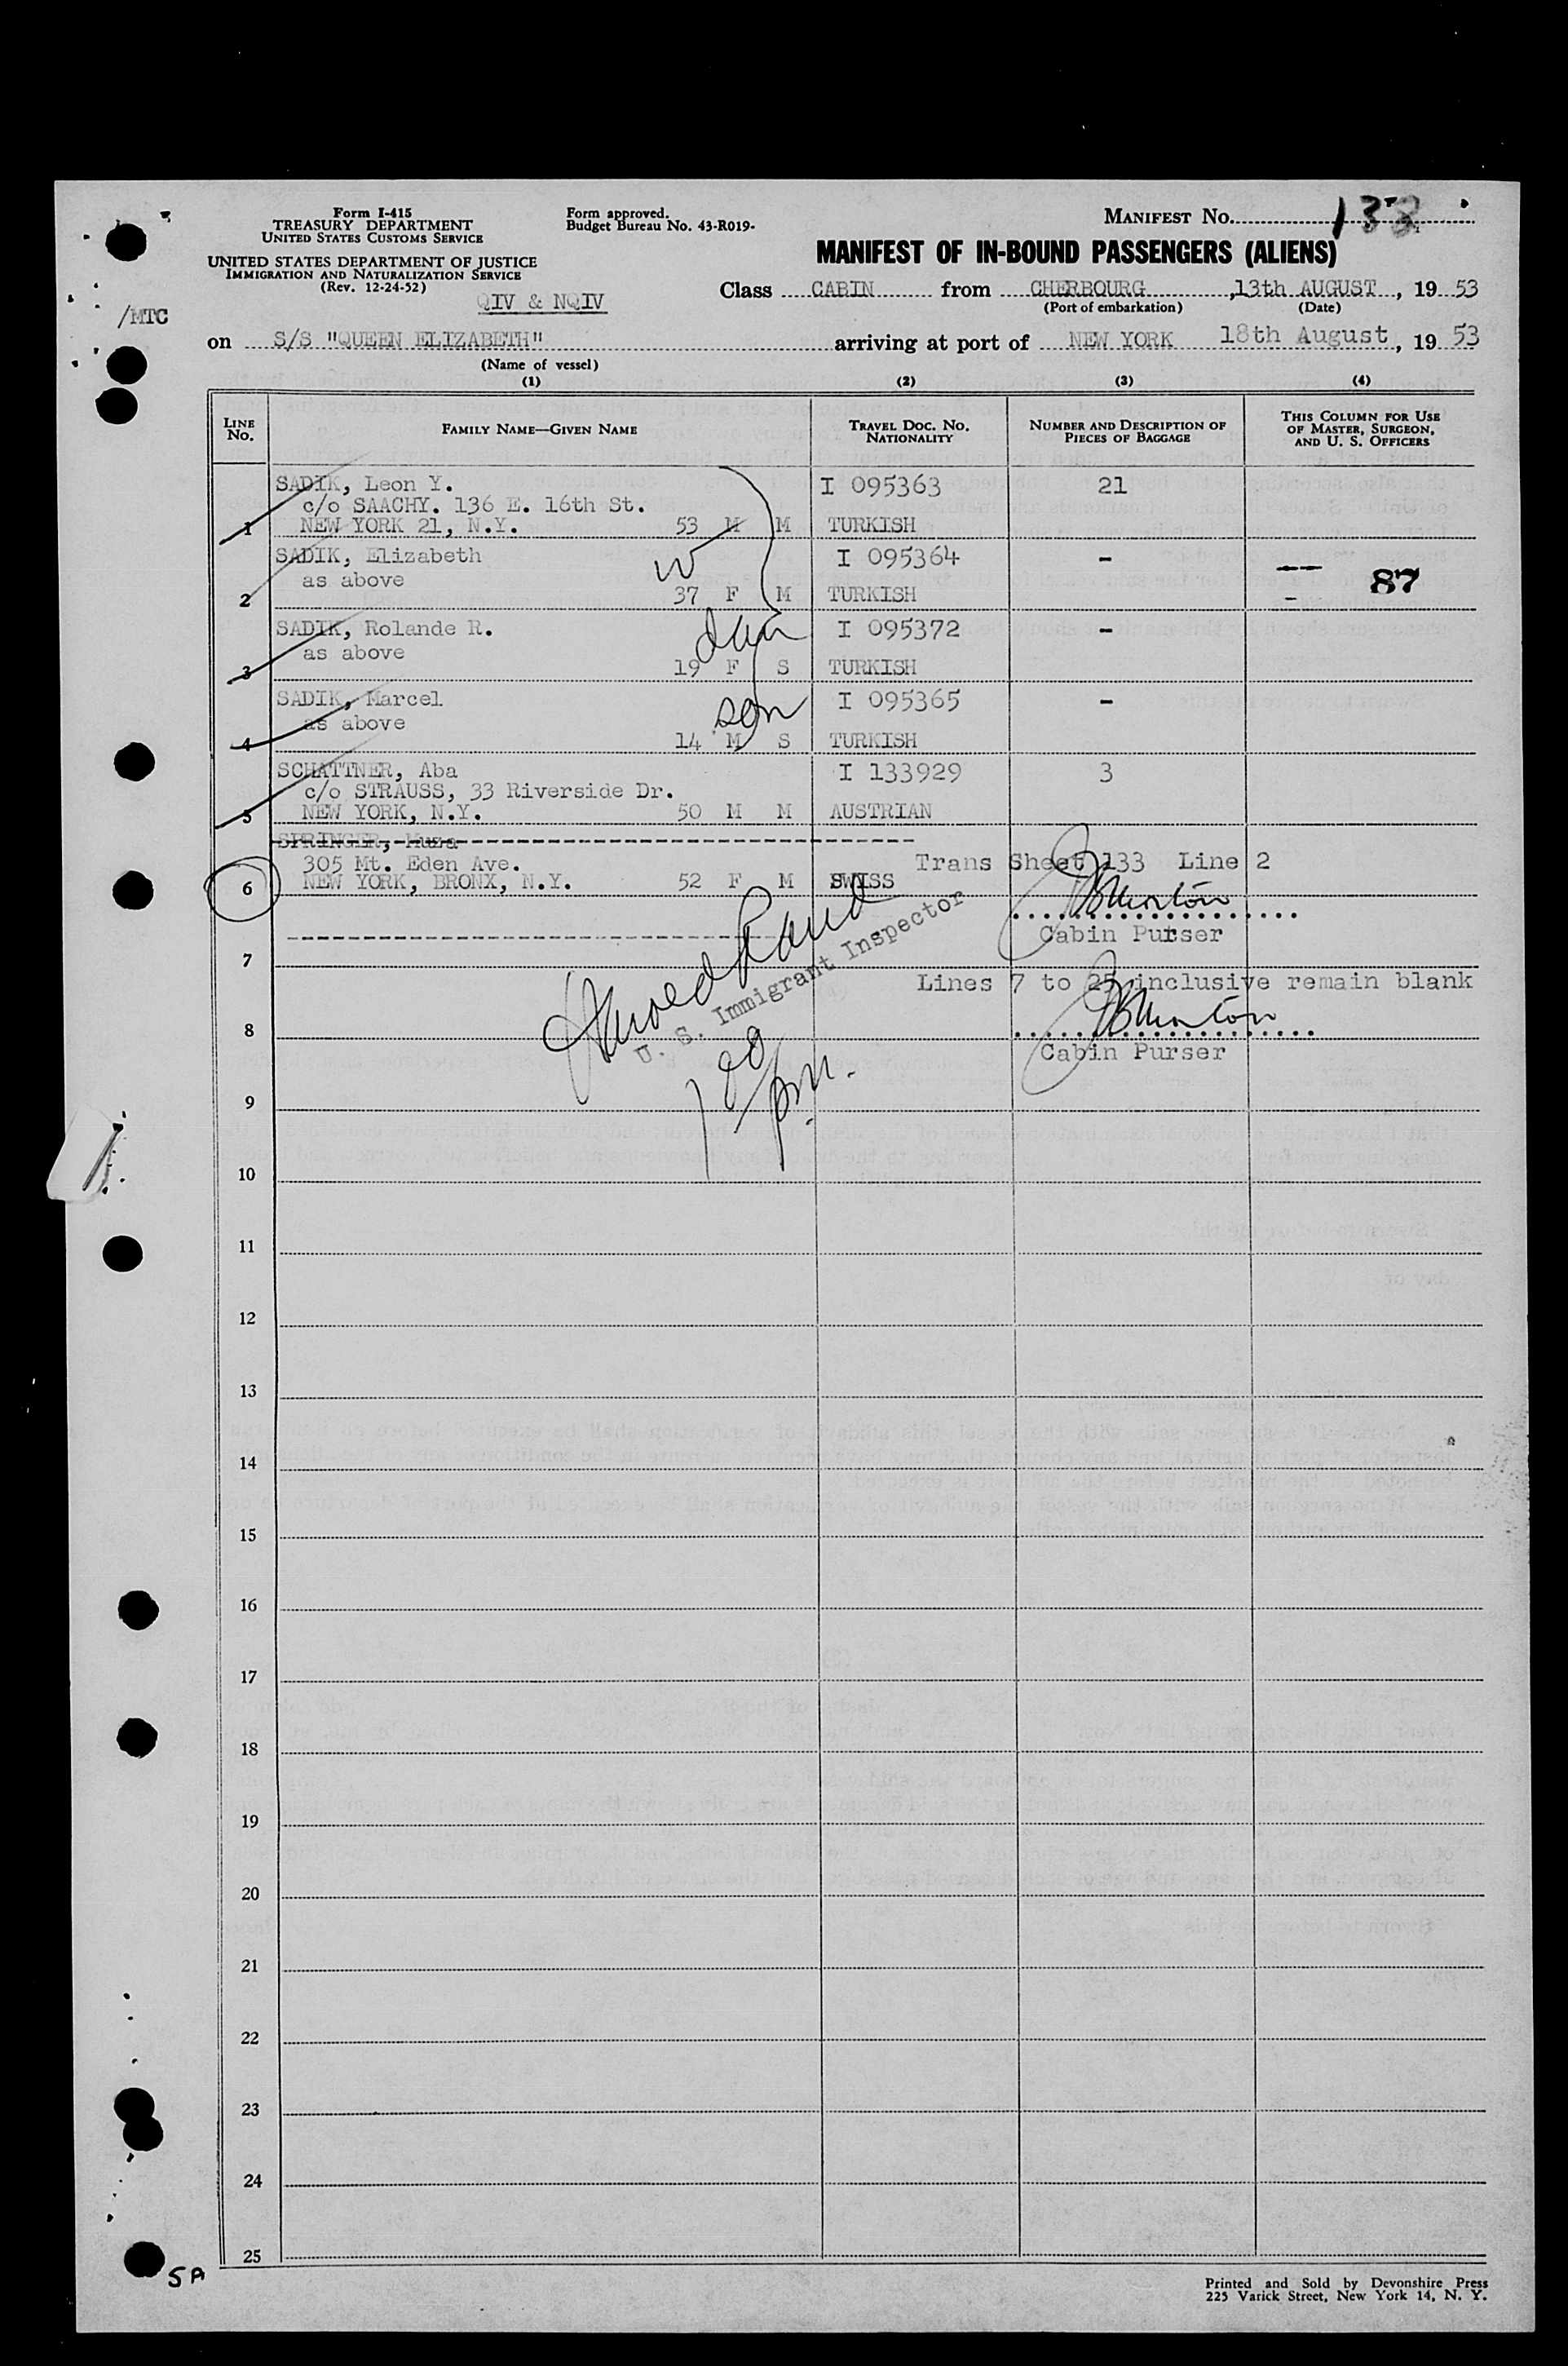 Form I-415
TREASURY DEPARTMENT
UNITED STATES CUSTOMS SERVICE
UNITED STATES DEPARTMENT OF JUSTICE
IMMIGRATION AND NATURALIZATION SERVICE
(Rev. 12-24-52)
Form approved.
Budget Bureau No. 43-R019-
MANIFEST NO.
MANIFEST OF IN-BOUND PASSENGERS (ALIENS)
QIV & NQIV
Class CABIN from CHERBOURG, 13th AUGUST, 19 53
(Port of embarkation) (Date)
/MTC
on S/S "QUEEN ELIZABETH" arriving at port of NEW YORK 18th August, 19 53
(Name of vessel)
(1) (2) (3) (4)
LINE NO. FAMILY NAME—GIVEN NAME TRAVEL DOC. NO. NATIONALITY NUMBER AND DESCRIPTION OF PIECES OF BAGGAGE THIS COLUMN FOR USE OF MASTER, SURGEON, AND U. S. OFFICERS
SADIK, Leon Y. I 095363 21
c/o SAACHY. 136 E. 16th St.
1 NEW YORK 21, N.Y. 53 M M TURKISH
SADIK, Elizabeth W I 095364 -
as above 87
2 37 F M TURKISH
SADIK, Rolande R. dau I 095372 -
as above
3 19 F S TURKISH
SADIK, Marcel son I 095365 -
as above
4 14 M S TURKISH
SCHATTNER, Aba I 133929 3
c/o STRAUSS, 33 Riverside Dr.
5 NEW YORK, N.Y. 50 M M AUSTRIAN
SPRINGER, Muza
305 Mt. Eden Ave. Trans Sheet 133 Line 2
6 NEW YORK, BRONX, N.Y. 52 F M SWISS
Cabin Purser
7
U. S. Immigrant Inspector
Lines 7 to 25 inclusive remain blank
8
Cabin Purser
1 00 pm.
9
10
11
12
13
14
15
16
17
18
19
20
21
22
23
24
25
SA
Printed and Sold by Devonshire Press
225 Varick Street, New York 14, N. Y.